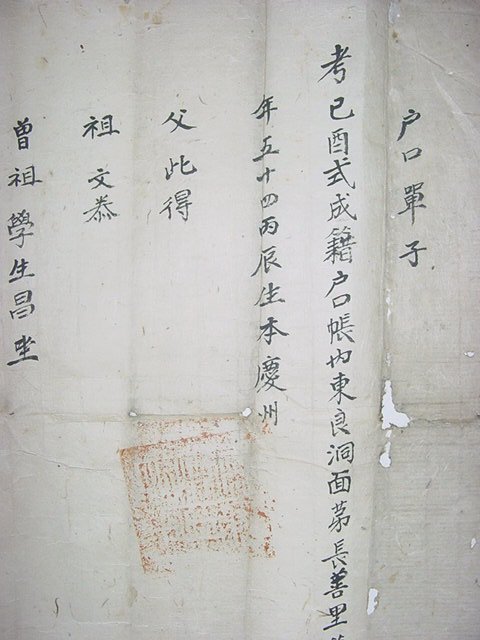 户口單子
考己酉式成籍户口帳內東良洞面苐長善里
年五十四丙辰生本慶州
父此得
祖文恭
曽祖學生昌坐